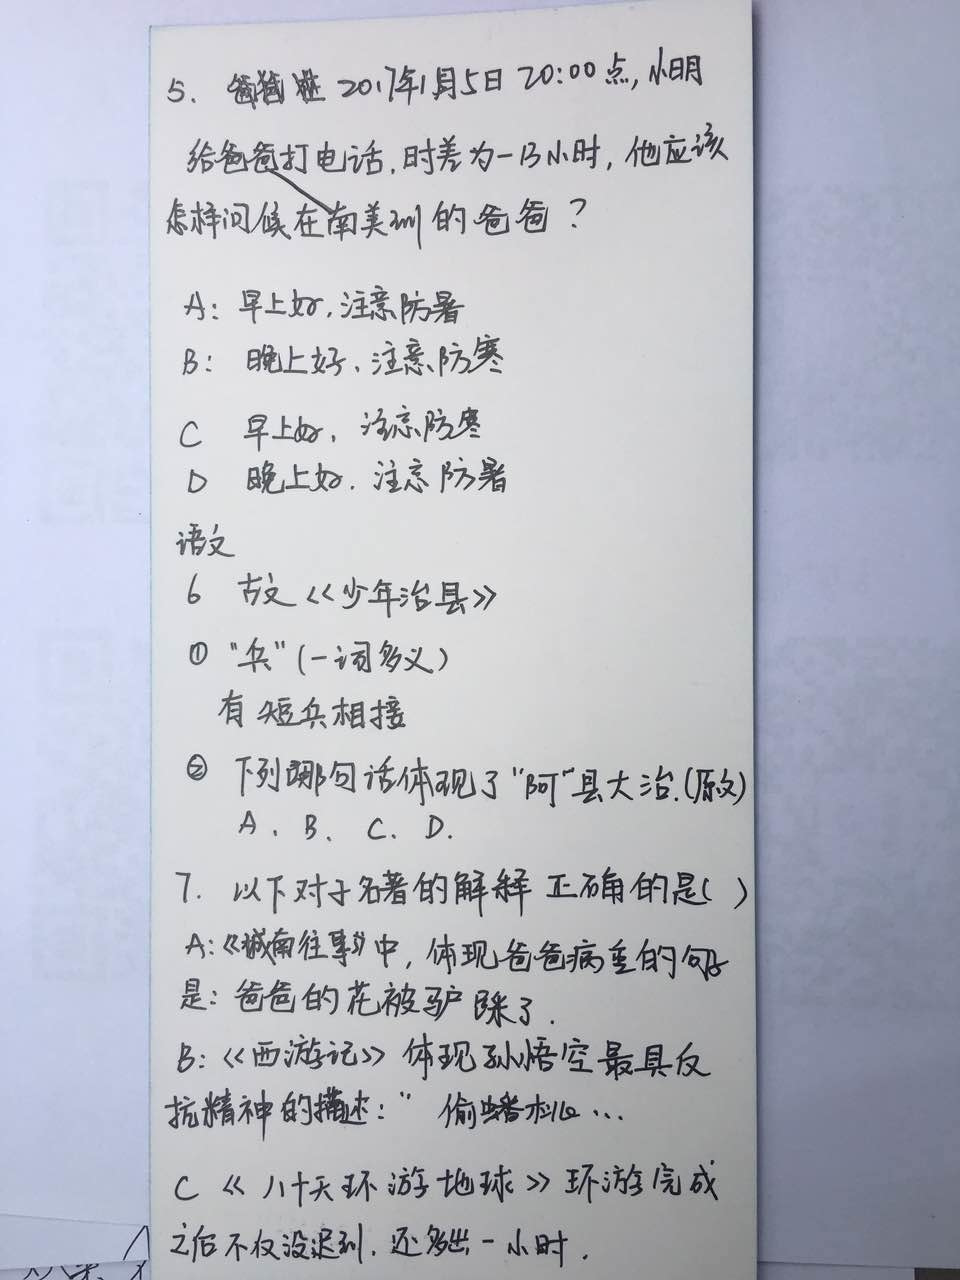 5. 爸爸 2017年1月5日 20:00点,小明
给爸爸打电话,时差为-13小时,他应该
怎样问候在南美洲的爸爸?
A:早上好,注意防暑
B:晚上好、注意防寒
C 早上好,注意防寒
D 晚上好.注意防暑
语文
6 古文《少年治县》
① "兵"(一词多义)
有 短兵相接
② 下列哪句话体现了"阿"县大治.(原文)
A、B、C、D.
7. 以下对于名著的解释 正确的是( )
A:《城南往事》中,体现爸爸病重的句子
是:爸爸的花被驴踩了.
B:《西游记》体现孙悟空最具反
抗精神的描述:" 偷蟠桃…
C 《八十天环游地球》环游完成
之后不仅没迟到,还多出一小时.